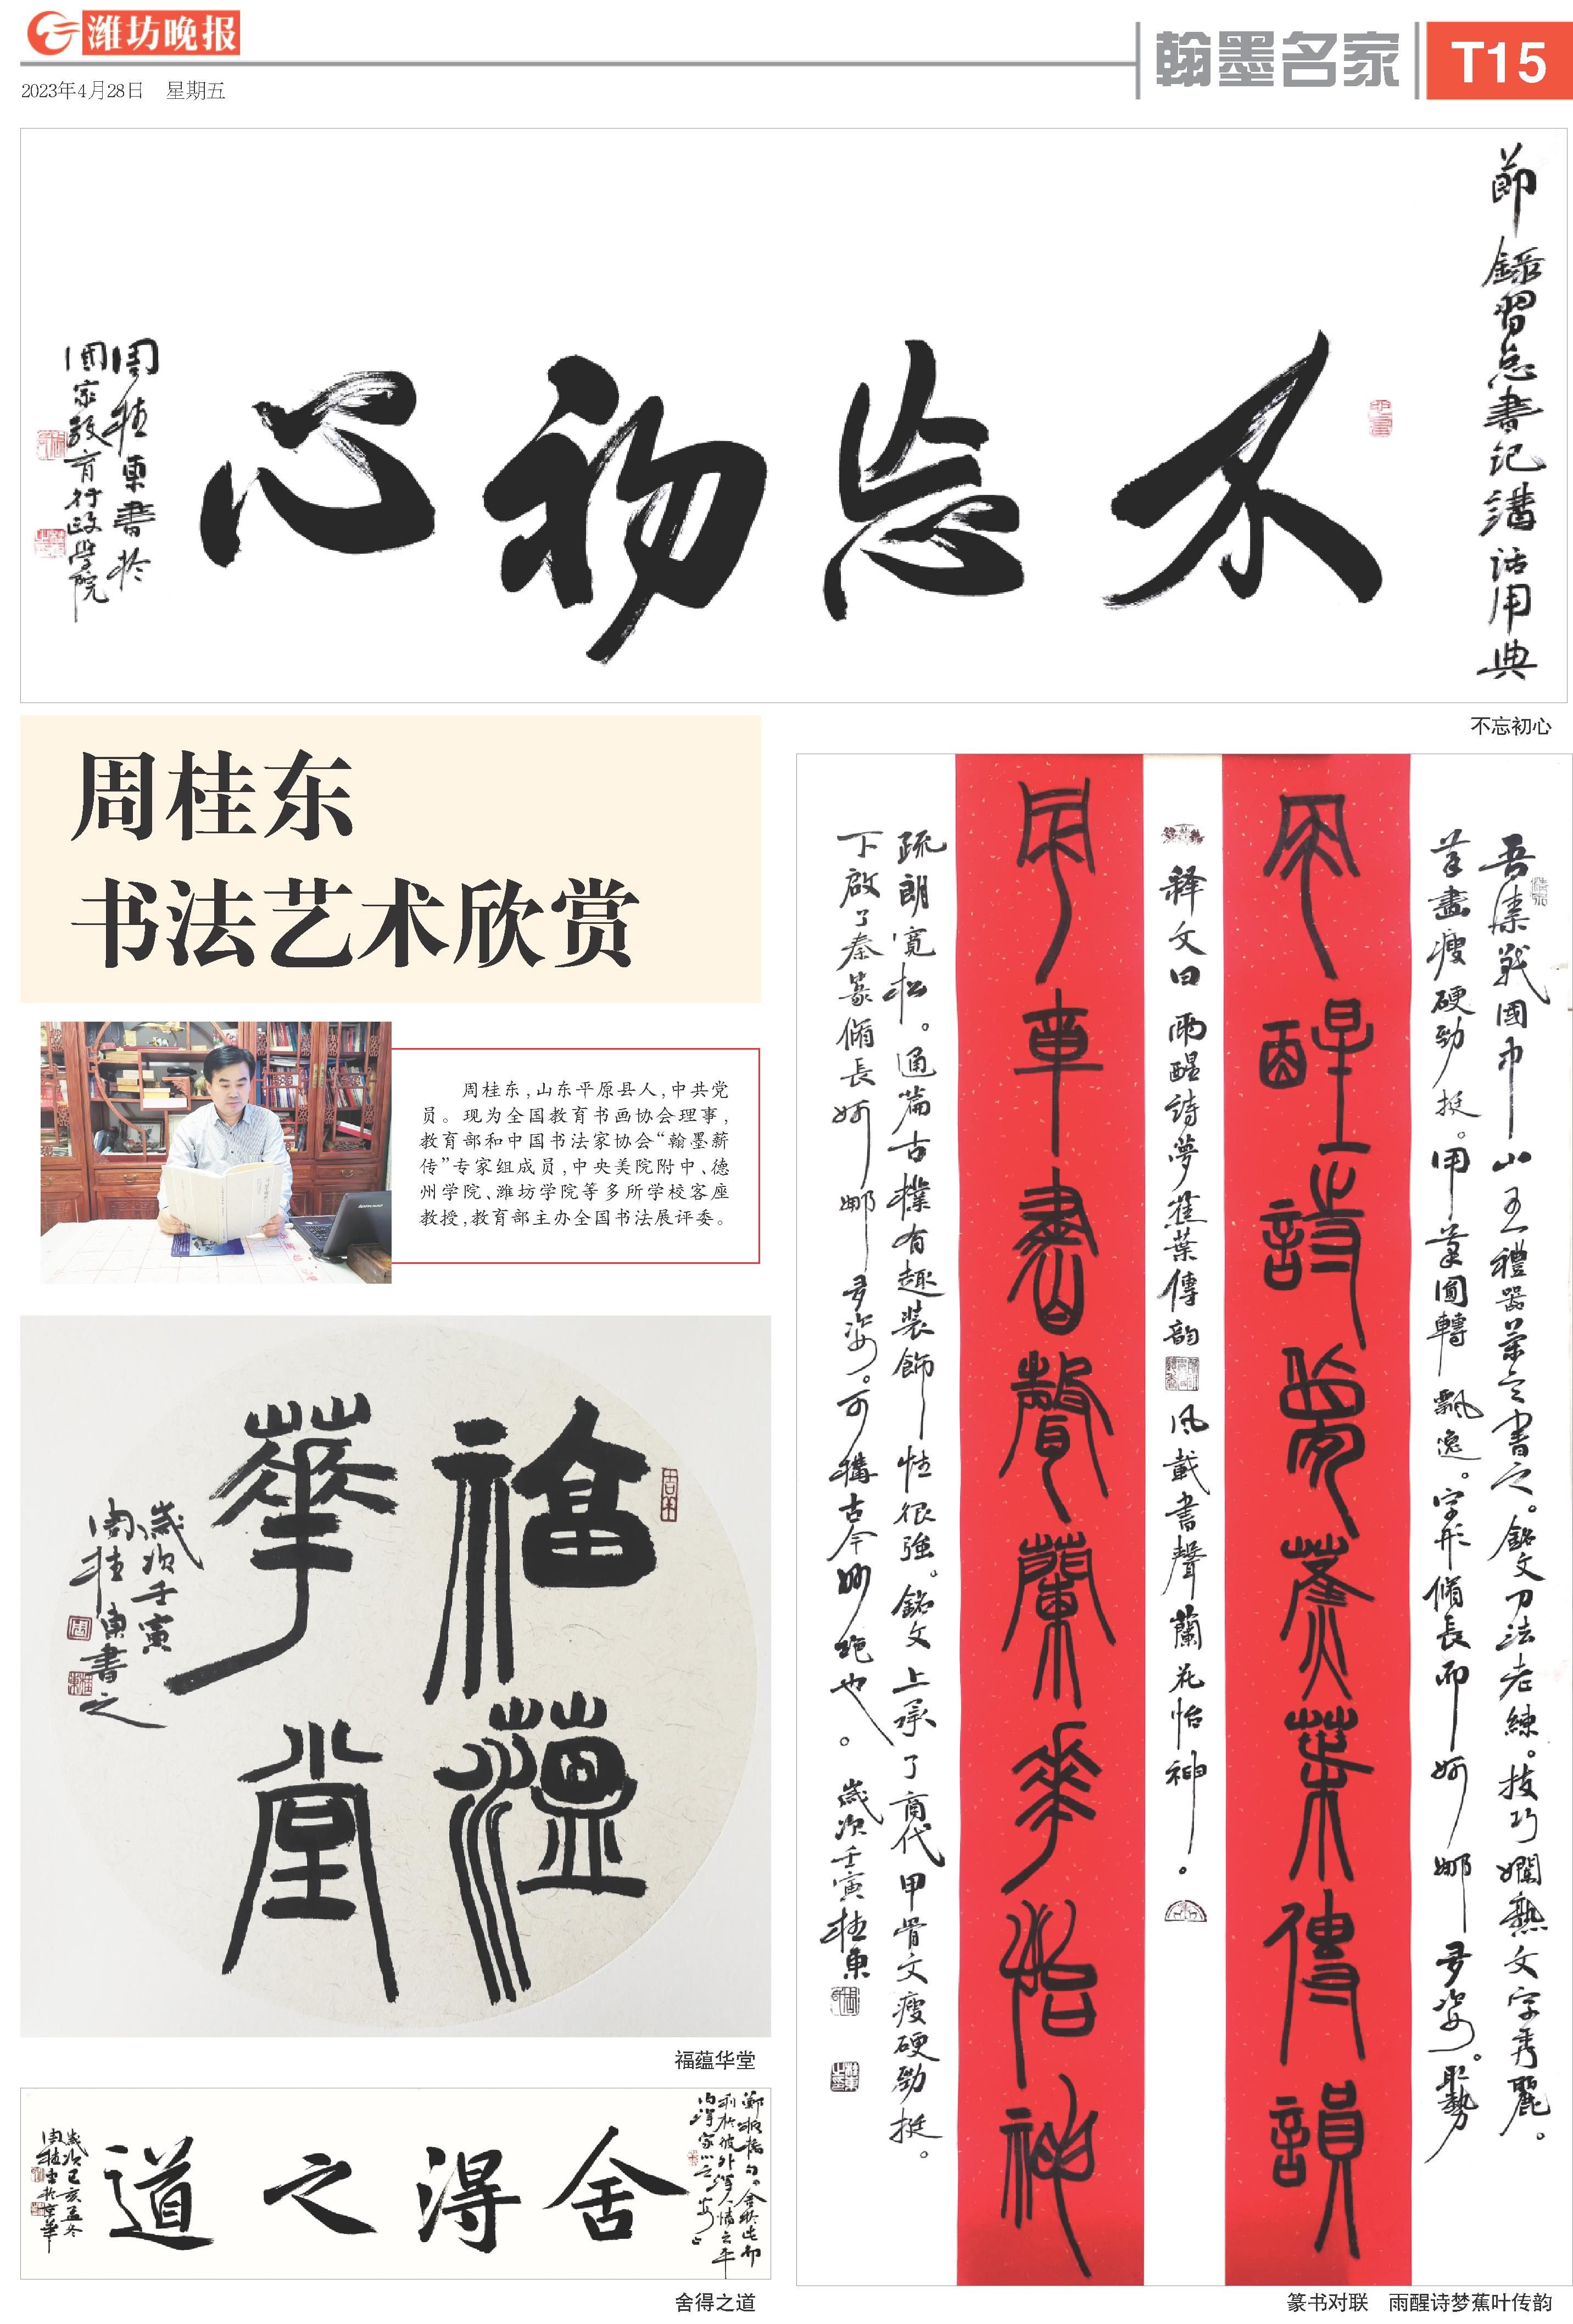 潍坊晚报
2023年4月28日 星期五
翰墨名家
T15
節錄習总書记講话用典
不忘初心
周桂東書於
國家教育行政學院
不忘初心
周桂东
书法艺术欣赏
周桂东，山东平原县人，中共党
员。现为全国教育书画协会理事，
教育部和中国书法家协会“翰墨薪
传”专家组成员，中央美院附中、德
州学院、潍坊学院等多所学校客座
教授，教育部主办全国书法展评委。
福蘊華堂
歲次壬寅
周桂東書之
福蕴华堂
舍得之道
歲次己亥孟冬
周桂東於京華
舍得之道
戰國中山王禮器
書之。銘文刀法老練。技巧嫻熟文字秀麗。
筆畫瘦硬勁挺。用筆圓轉飄逸。字形脩長而婀娜多姿。
雨醒詩夢蕉葉傳韻
释文曰雨醒詩夢蕉葉傳韵风載書聲蘭花怡神。
風載書聲蘭華怡神
疏朗寬松。通篇古樸有趣裝飾性很強。銘文上承了商代甲骨文瘦硬勁挺。
下啟了秦篆脩長婀娜多姿。可稱古今妙绝也。歲次壬寅桂東
篆书对联 雨醒诗梦蕉叶传韵